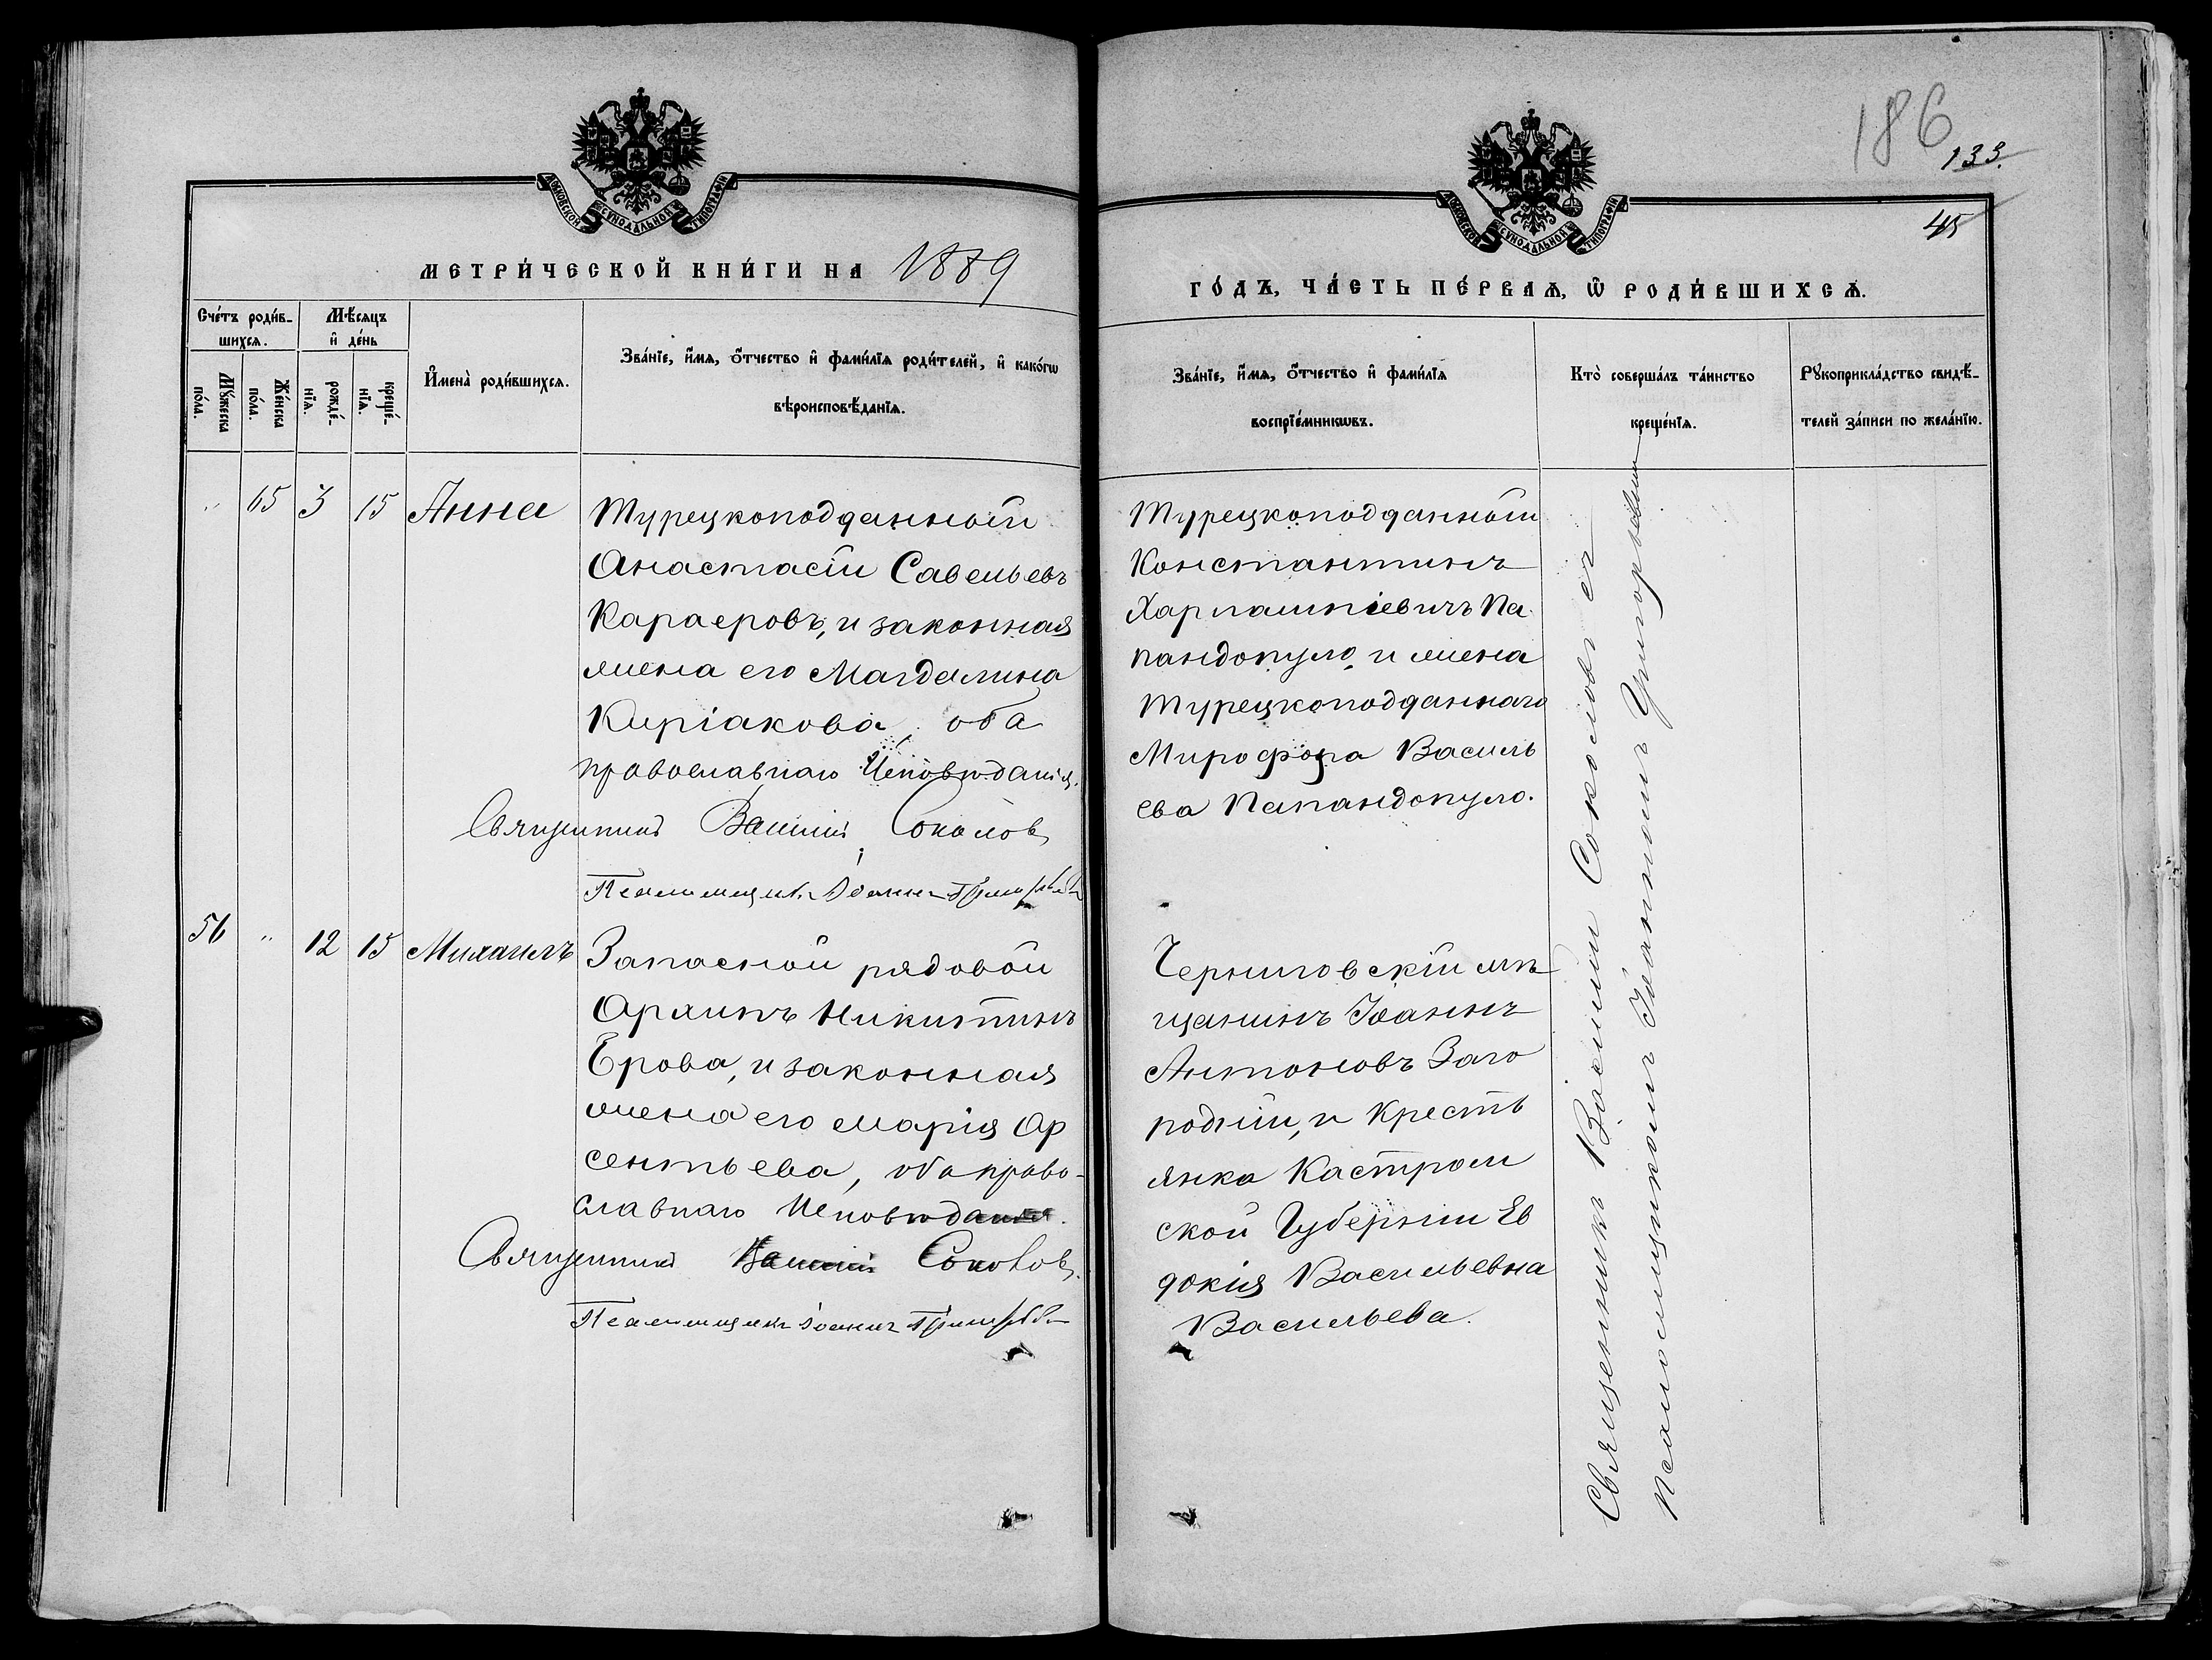 МОСКОВСКОЙ СѴНОДАЛЬНОЙ ТИПОГРАФІИ
МЕТРИ́ЧЕСКОЙ КНИ́ГИ НА 1889
Сче́тъ роди́в-
шихсѧ.
Мѣ́сѧцъ
и҆ де́нь
Мꙋ́жеска
по́ла.
Же́нска
по́ла.
рожде́-
нїѧ.
креще́-
нїѧ.
И҆мена̀ роди́вшихсѧ.
Зва́нїе, и҆́мѧ, ѻ҆́тчество и҆ фами́лїѧ роди́телей, и҆ како́гѡ
вѣроисповѣ́данїѧ.
" 65 3 15 Анна
Турецкоподданный
Анастасій Савельевъ
Караеровъ, и законная
жена его Магдалина
Киріакова, оба
православнаго Исповѣданія.
Священникъ Василій Соколовъ
Псаломщикъ Іоаннъ
56 " 12 15 Михаилъ
Запасной рядовой
Архипъ Никитинъ
Ерова, и законная
жена его Марія Ар
сентьева, оба право-
славнаго Исповѣданія.
Священникъ Василій Соколовъ
Псаломщикъ Іоаннъ
186
133.
45
МОСКОВСКОЙ СѴНОДАЛЬНОЙ ТИПОГРАФІИ
ГО́ДЪ, ЧА́СТЬ ПЕ́РВАѦ, Ѡ҆ РОДИ́ВШИХСѦ.
Зва́нїе, и҆́мѧ, ѻ҆́тчество и҆ фами́лїѧ
воспрїе́мникѡвъ.
Кто̀ соверша́лъ та́инство
креще́нїѧ.
Рꙋкоприкла́дство свидѣ́-
телей за́писи по жела́нїю.
Турецкоподданный
Константинъ
Харлампіевичъ Па
пандопуло, и жена
Турецкоподданнаго
Мирофора Василь
ева Папандопуло.
Черниговскій мѣ
щанинъ Іоаннъ
Антоновъ Заго
родній, и Кресть
янка Кастром
ской Губерніи Ев
докія Васильевна
Васильева.
Священникъ Василій Соколовъ съ
Псаломщикомъ Іоанномъ